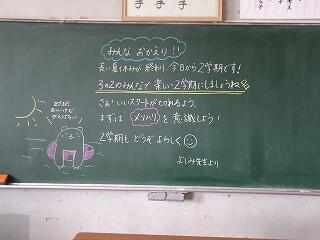 子 子 子
みんな おかえり!!
長い夏休みが終わり、今日から2学期です!
3の2のみんなで楽しい2学期にしましょうね
さぁ!いいスタートがきれるよう、
まずは メリハリ を意識しよう!
2学期も どうぞ よろしく
よしみ先生より
まだまだ
あついけど
がんばろー!